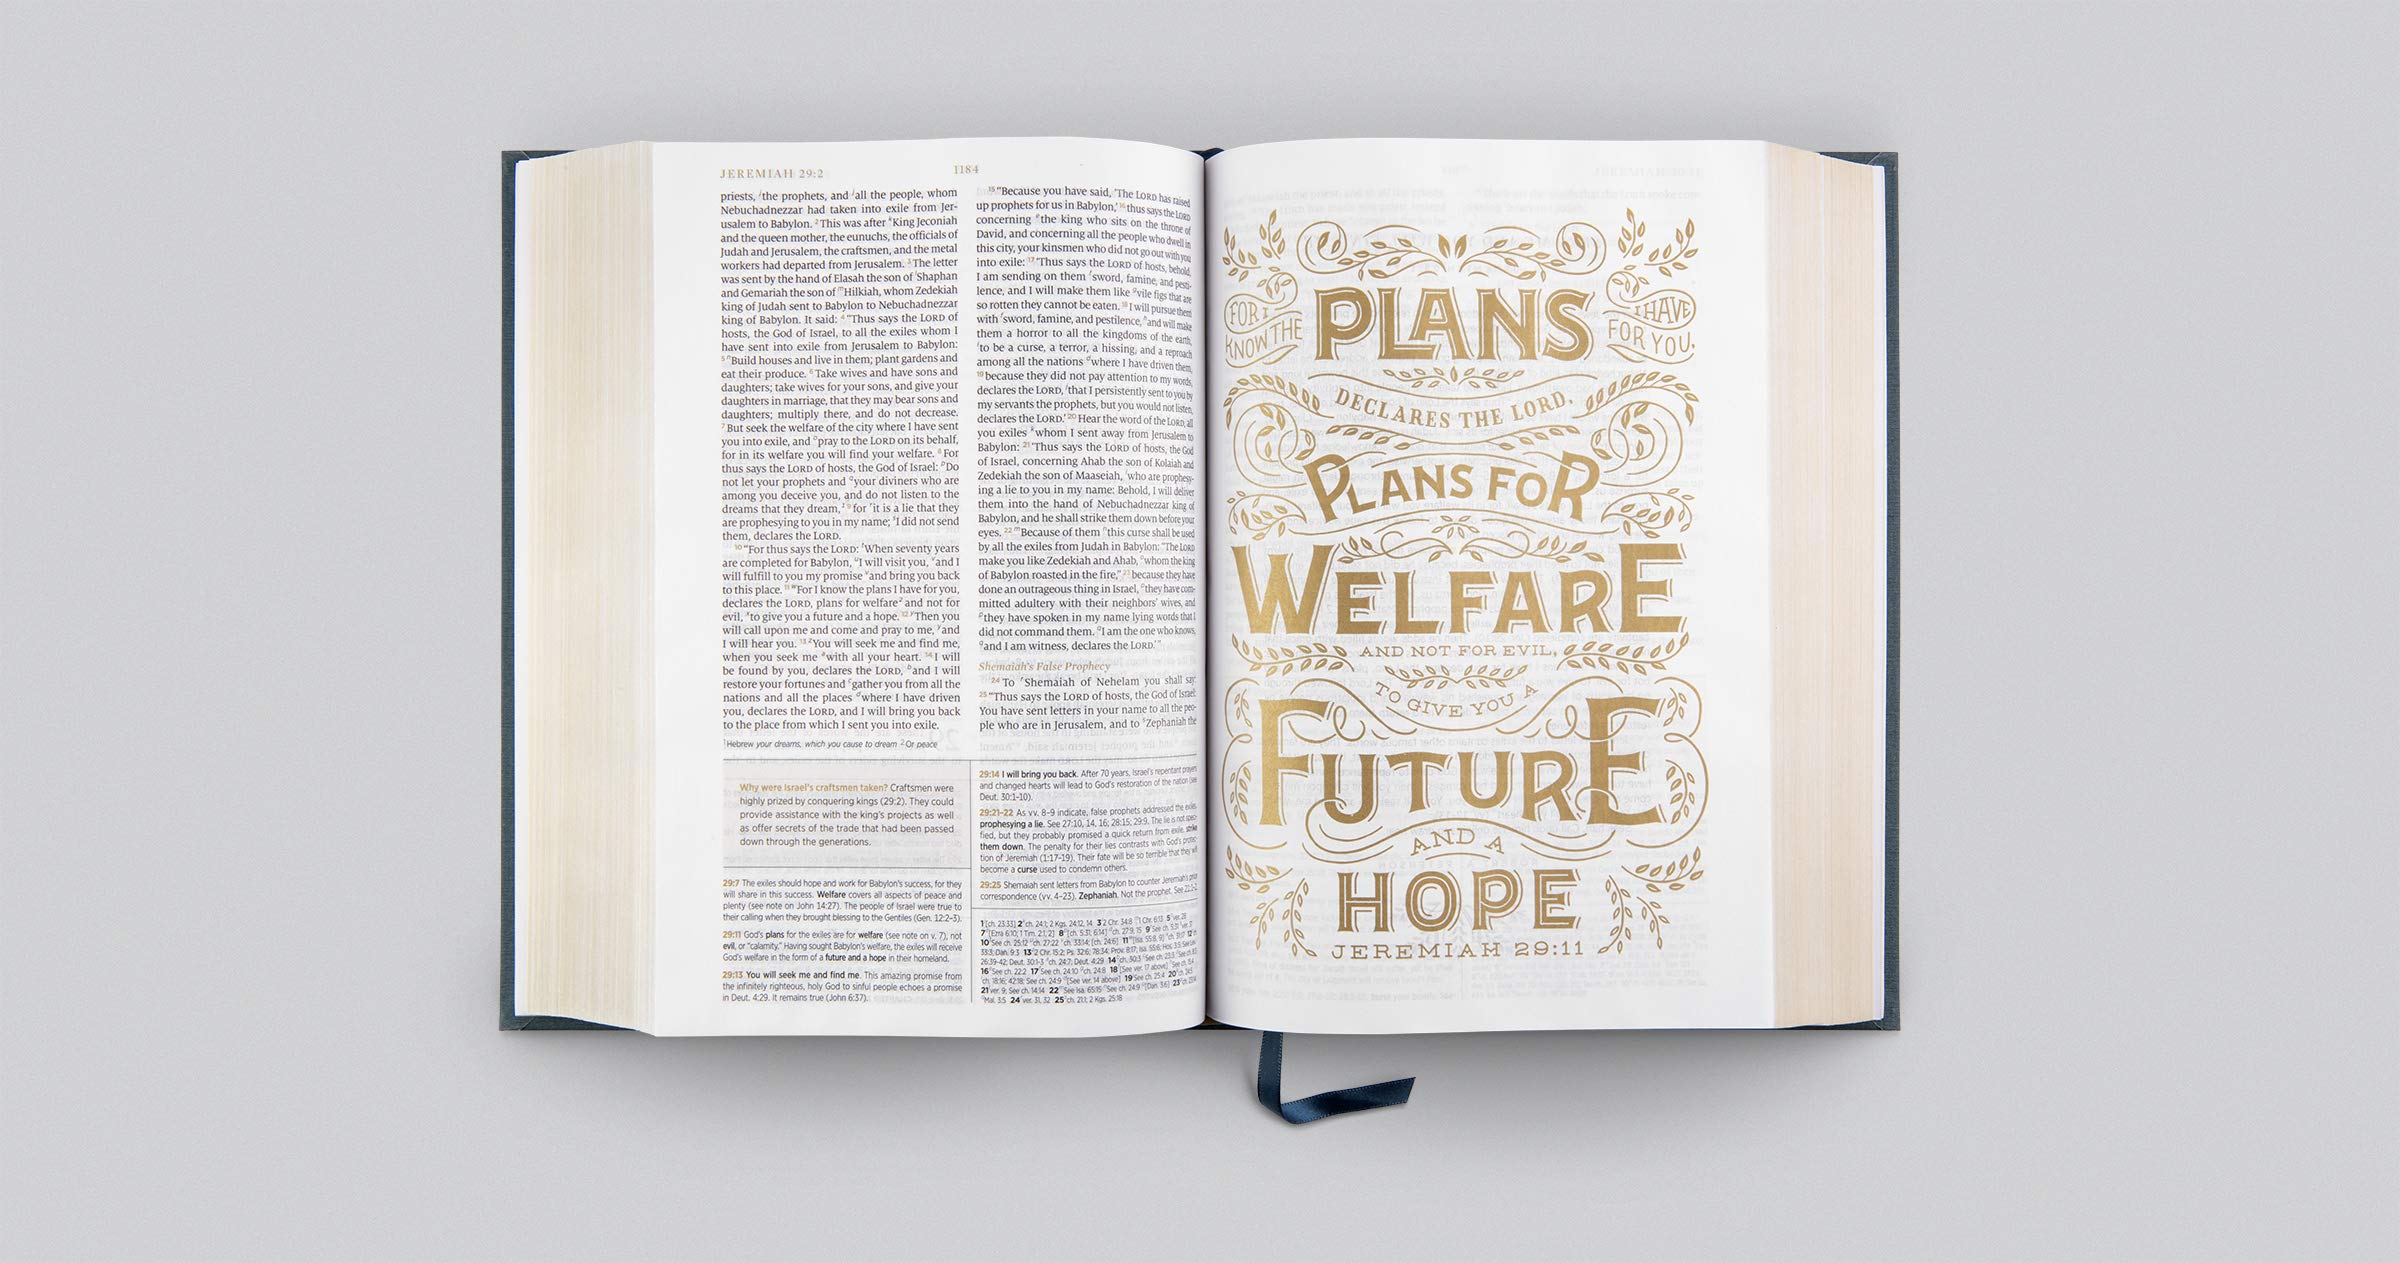 JEREMIAH 29:2
1184
priests, ithe prophets, and jall the people, whom
Nebuchadnezzar had taken into exile from Jer-
usalem to Babylon. 2This was after kKing Jeconiah
and the queen mother, the eunuchs, the officials of
Judah and Jerusalem, the craftsmen, and the metal
workers had departed from Jerusalem. 3The letter
was sent by the hand of Elasah the son of lShaphan
and Gemariah the son of mHilkiah, whom Zedekiah
king of Judah sent to Babylon to Nebuchadnezzar
king of Babylon. It said: 4"Thus says the LORD of
hosts, the God of Israel, to all the exiles whom I
have sent into exile from Jerusalem to Babylon:
5nBuild houses and live in them; plant gardens and
eat their produce. 6Take wives and have sons and
daughters; take wives for your sons, and give your
daughters in marriage, that they may bear sons and
daughters; multiply there, and do not decrease.
7But seek the welfare of the city where I have sent
you into exile, and opray to the LORD on its behalf,
for in its welfare you will find your welfare. 8For
thus says the LORD of hosts, the God of Israel: pDo
not let your prophets and qyour diviners who are
among you deceive you, and do not listen to the
dreams that they dream,1 9for rit is a lie that they
are prophesying to you in my name; sI did not send
them, declares the LORD.
10"For thus says the LORD: tWhen seventy years
are completed for Babylon, uI will visit you, vand I
will fulfill to you my promise vand bring you back
to this place. 11wFor I know the plans I have for you,
declares the LORD, plans for welfare2 and not for
evil, xto give you a future and a hope. 12yThen you
will call upon me and come and pray to me, yand
I will hear you. 13zYou will seek me and find me,
when you seek me awith all your heart. 14I will
be found by you, declares the LORD, band I will
restore your fortunes and cgather you from all the
nations and all the places dwhere I have driven
you, declares the LORD, and I will bring you back
to the place from which I sent you into exile.
1Hebrew your dreams, which you cause to dream 2Or peace
Why were Israel's craftsmen taken? Craftsmen were
highly prized by conquering kings (29:2). They could
provide assistance with the king's projects as well
as offer secrets of the trade that had been passed
down through the generations.
29:7 The exiles should hope and work for Babylon's success, for they
will share in this success. Welfare covers all aspects of peace and
plenty (see note on John 14:27). The people of Israel were true to
their calling when they brought blessing to the Gentiles (Gen. 12:2–3).
29:11 God's plans for the exiles are for welfare (see note on v. 7), not
evil, or "calamity." Having sought Babylon's welfare, the exiles will receive
God's welfare in the form of a future and a hope in their homeland.
29:13 You will seek me and find me. This amazing promise from
the infinitely righteous, holy God to sinful people echoes a promise
in Deut. 4:29. It remains true (John 6:37).
15"Because you have said, 'The LORD has raised
up prophets for us in Babylon,' 16thus says the LORD
concerning ethe king who sits on the throne of
David, and concerning all the people who dwell in
this city, your kinsmen who did not go out with you
into exile: 17'Thus says the LORD of hosts, behold,
I am sending on them fsword, famine, and pesti-
lence, and I will make them like gvile figs that are
so rotten they cannot be eaten. 18I will pursue them
with fsword, famine, and pestilence, hand will make
them a horror to all the kingdoms of the earth,
ito be a curse, a terror, a hissing, and a reproach
among all the nations dwhere I have driven them,
19because they did not pay attention to my words,
declares the LORD, jthat I persistently sent to you by
my servants the prophets, but you would not listen,
declares the LORD.' 20Hear the word of the LORD, all
you exiles kwhom I sent away from Jerusalem to
Babylon: 21'Thus says the LORD of hosts, the God
of Israel, concerning Ahab the son of Kolaiah and
Zedekiah the son of Maaseiah, lwho are prophesy-
ing a lie to you in my name: Behold, I will deliver
them into the hand of Nebuchadnezzar king of
Babylon, and he shall strike them down before your
eyes. 22mBecause of them nthis curse shall be used
by all the exiles from Judah in Babylon: "The LORD
make you like Zedekiah and Ahab, owhom the king
of Babylon roasted in the fire," 23because they have
done an outrageous thing in Israel, pthey have com-
mitted adultery with their neighbors' wives, and
pthey have spoken in my name lying words that I
did not command them. qI am the one who knows,
qand I am witness, declares the LORD.'"
Shemaiah's False Prophecy
24To rShemaiah of Nehelam you shall say:
25"Thus says the LORD of hosts, the God of Israel:
You have sent letters in your name to all the peo-
ple who are in Jerusalem, and to sZephaniah the
29:14 I will bring you back. After 70 years, Israel's repentant prayers
and changed hearts will lead to God's restoration of the nation (see
Deut. 30:1–10).
29:21–22 As vv. 8–9 indicate, false prophets addressed the exiles,
prophesying a lie. See 27:10, 14, 16; 28:15; 29:9. The lie is not speci-
fied, but they probably promised a quick return from exile. strike
them down. The penalty for their lies contrasts with God's protec-
tion of Jeremiah (1:17–19). Their fate will be so terrible that they will
become a curse used to condemn others.
29:25 Shemaiah sent letters from Babylon to counter Jeremiah's prior
correspondence (vv. 4–23). Zephaniah. Not the prophet. See
FOR I
KNOW THE
PLANS
I HAVE
FOR YOU,
DECLARES THE LORD,
PLANS FOR
WELFARE
AND NOT FOR EVIL,
TO GIVE YOU A
FUTURE
AND A
HOPE
JEREMIAH 29:11